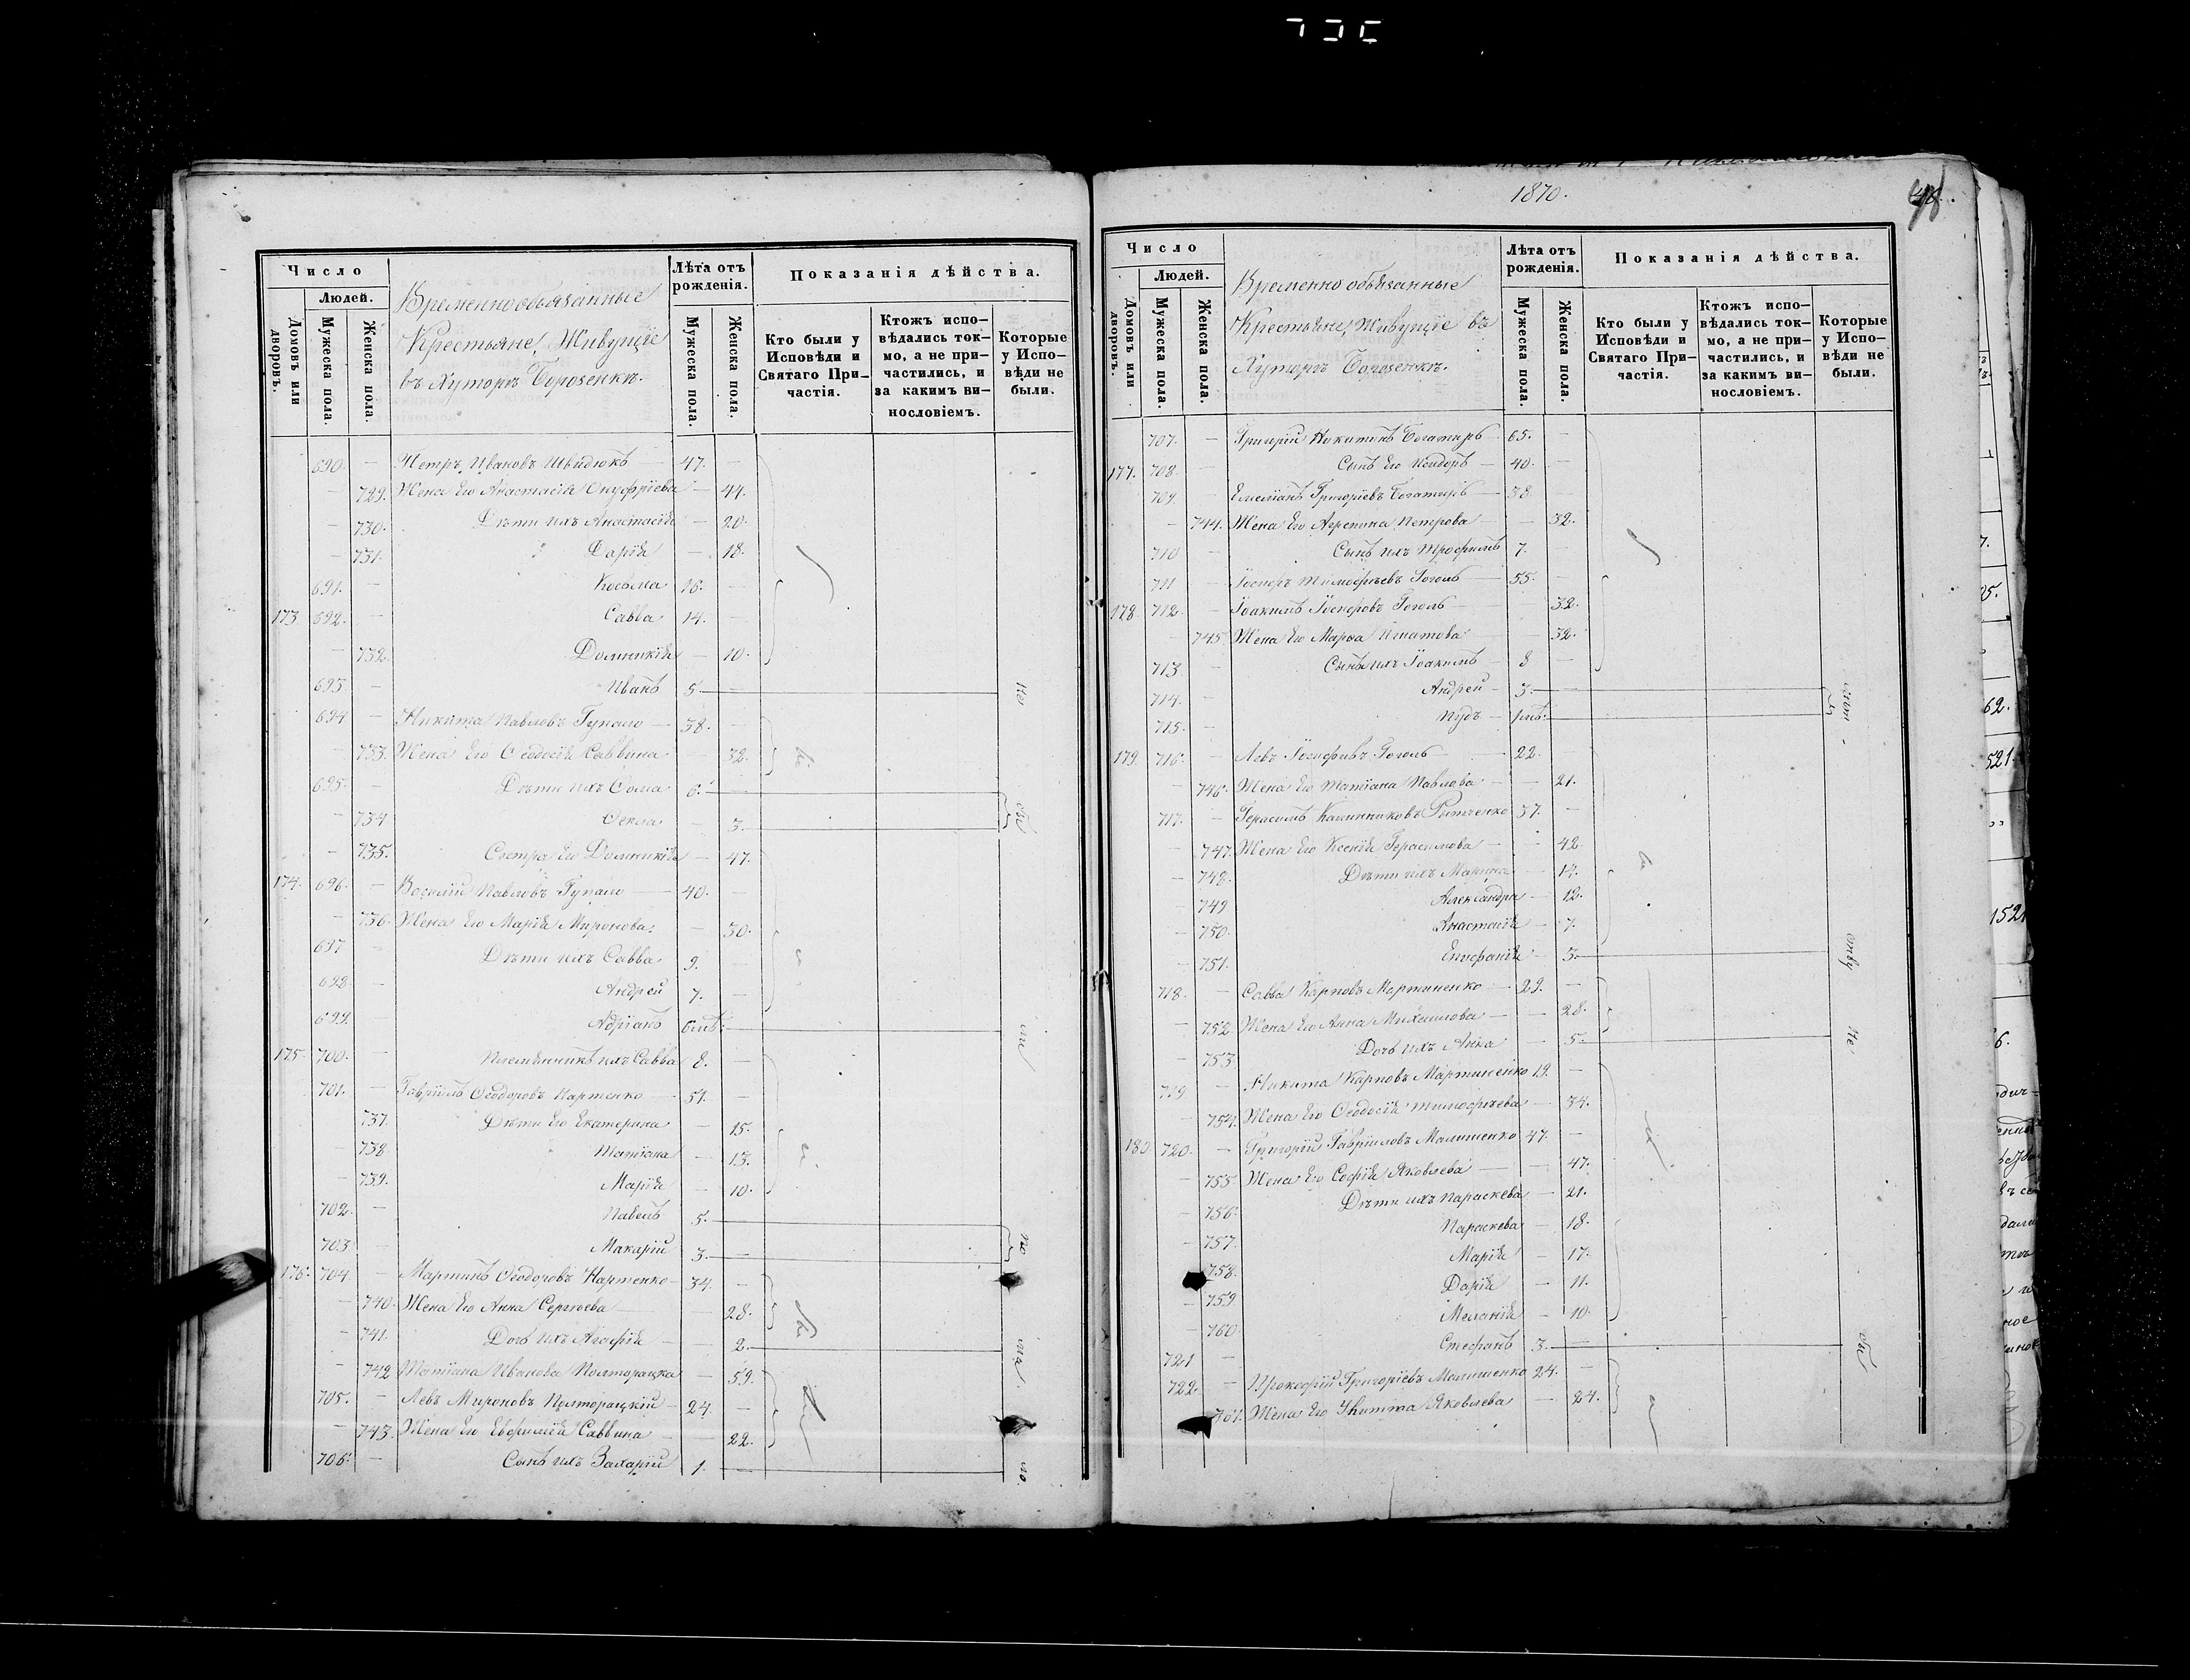 Число
Людей.
Домовъ или дворовъ.
Мужеска пола.
Женска пола.
Временно обязанные
Крестьяне, Живущіе
въ Хуторѣ Борозенкѣ.
Лѣта отъ рожденія.
Мужеска пола.
Женска пола.
Показанія дѣйства.
Кто были у Исповѣди и Святаго При-частія.
Ктожъ испо-вѣдались ток-мо, а не при-частились, и за какимъ ви-нословіемъ.
Которые у Испо-вѣди не были.
690. — Петръ Ивановъ Швидюкъ 47. —
— 729. Жена Его Анастасія Онуфріева — 44.
— 730. Дѣти ихъ Анастасія — 20.
— 731. Дарія — 18.
691. — Косьма 16. —
173. 692. — Савва 14. —
— 732. Домникія — 10.
693. — Иванъ 5. —
694 — Никита Павловъ Гупало 38. —
— 733. Жена Его Ѳеодосія Саввина — 32.
695. — Дѣти ихъ Ѳома 6. —
— 734 Ѳекла — 3.
— 735. Сестра Его Домникія — 47.
174. 696. — Василій Павловъ Гупало 40. —
— 736. Жена Его Марія Миронова — 30.
697 — Дѣти ихъ Савва 9. —
698. — Андрей 7. —
699. — Адріанъ 6 мѣ.
175. 700. — Племянникъ ихъ Савва 8. —
701. — Гавріилъ Ѳеодоровъ 51. —
737. Дѣти Его Екатерина — 15.
738. Татіана — 13.
739. Марія — 10.
702. — Павелъ 5. —
703. — Макарій 3. —
176. 704. — Мартинъ Ѳеодоровъ 34. —
— 740. Жена Его Анна Сергѣева — 28.
— 741. Дочь ихъ Агафія — 2.
— 742 Татіана Иванова Полторацка — 59.
705. — Левъ Мироновъ Полторацкій 24. —
— 743. Жена Его Евфимія Саввина — 22.
706. — Сынъ ихъ Захарій 1. —
1870.
48
Число
Людей.
Домовъ или дворовъ.
Мужеска пола.
Женска пола.
Временно обязанные
Крестьяне, Живущіе въ
Хуторѣ Борозенкѣ.
Лѣта отъ рожденія.
Мужеска пола.
Женска пола.
Показанія дѣйства.
Кто были у Исповѣди и Святаго При-частія.
Ктожъ испо-вѣдались ток-мо, а не при-частились, и за какимъ ви-нословіемъ.
Которые у Испо-вѣди не были.
707. — Григорій Никитинъ Богатирь 65. —
177. 708. — Сынъ Его Исидоръ 40. —
709. — Емеліанъ Григоріевъ Богатирь 38. —
— 744. Жена Его Агрепина Петрова — 32.
710 — Сынъ ихъ Трофимъ 7. —
711 — Іосифъ Тимофѣевъ Гоголь 55. —
178. 712. — Іоакимъ Іосифовъ Гоголь 32.
— 745 Жена Его Марѳа Игнатова — 32.
713 — Сынъ ихъ Іоакимъ 8 —
714. — Андрей 3. —
715. — Пудъ 1 мѣ.
179. 716. — Левъ Іосифовъ Гоголь 22. —
— 746. Жена Его Татіана Павлова — 21.
717. — Герасимъ Калинниковъ 37. —
— 747. Жена Его Ксенія Герасимова — 42.
— 748. Дѣти ихъ Марина — 14.
— 749 Александра — 12.
— 750. Анастасія — 7.
— 751. Епифанія — 3.
718. — Савва Карповъ Мартиненко 29. —
— 752. Жена Его Анна Михаилова — 28.
— 753 Дочь ихъ Анна — 5.
719 — Никита Карповъ Мартиненко 19. —
— 754. Жена Его Ѳеодосія Тимофѣева — 34.
180 720. — Григорій Гавріиловъ Малишенко 47. —
— 755. Жена Его Софія Яковлева — 47.
— 756. Дѣти ихъ Параскева — 21.
— 757. Параскева — 18.
758. Марія — 17.
— 759 Дарія — 11.
— 760 Меланія — 10.
721 — Стефанъ 3. —
722. — Прокофій Григоріевъ Малишенко 24. —
761. Жена Его Яковлева — 24.